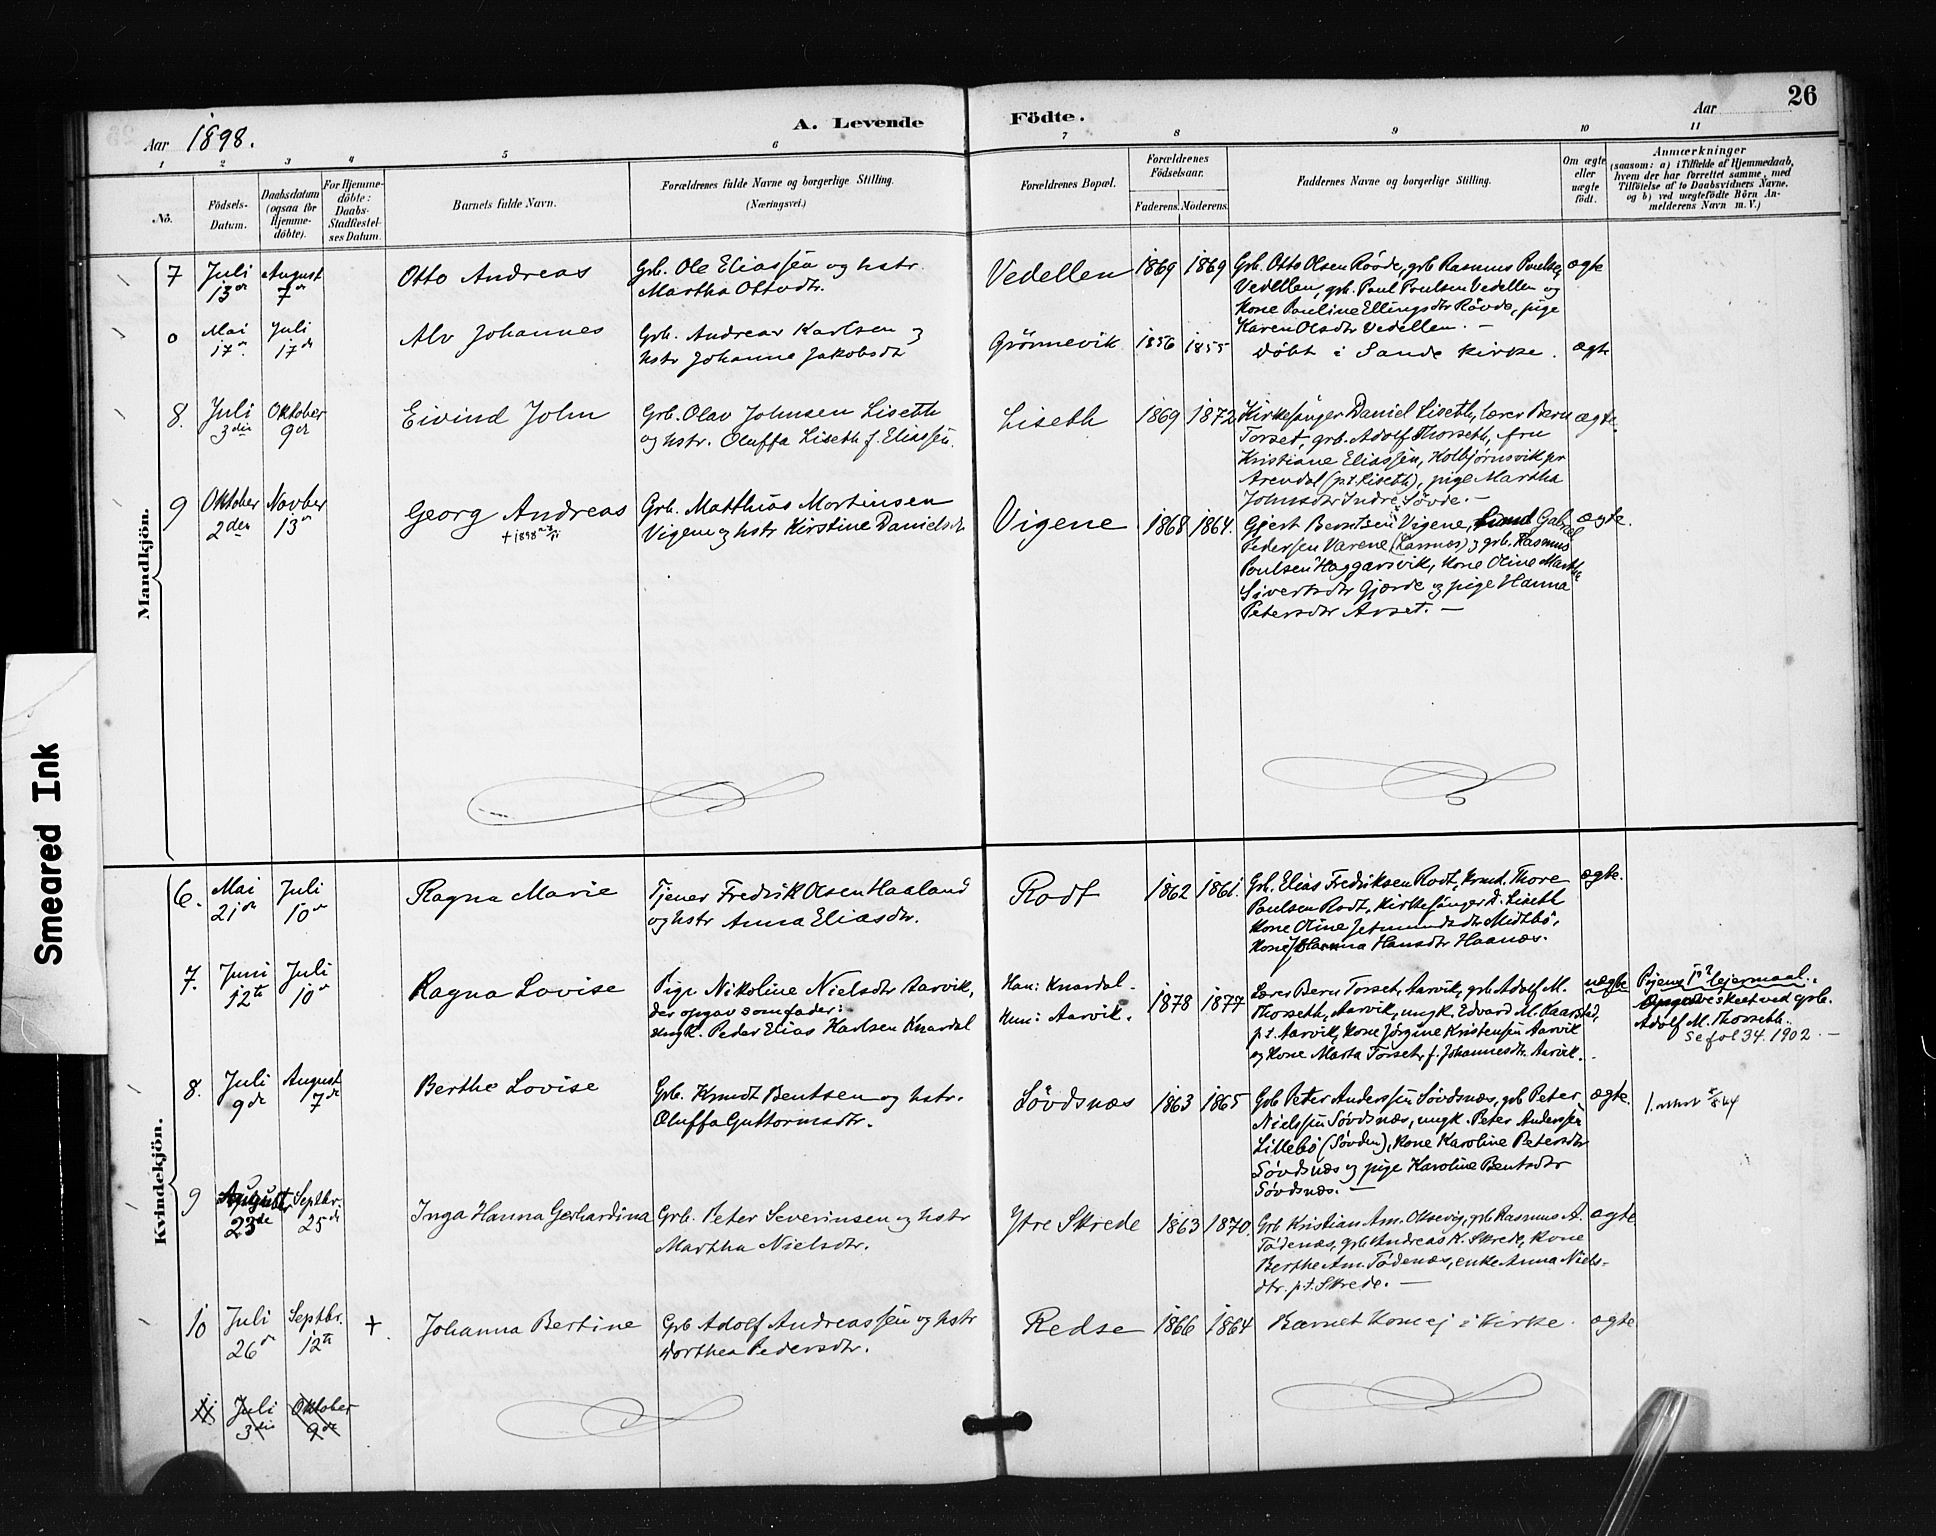 26
Aar 1898.
A. Levende Födte.
Aar
1 2 3 4 5 6 7 8 9 10 11
No.
Födsels-
Datum.
Daabsdatum
(ogsaa for
Hjemme-
döbte).
For Hjemme-
döbte:
Daabs-
Stadfæstel-
ses Datum.
Barnets fulde Navn.
Forældrenes fulde Navne og borgerlige Stilling.
(Næringsvei.)
Forældrenes Bopæl.
Forældrenes
Födselsaar.
Faderens. Moderens.
Faddernes Navne og borgerlige Stilling.
Om ægte
eller
uægte
födt.
Anmærkninger
(saasom: a) i Tilfælde af Hjemmedaab,
hvem der har forrettet samme, med
Tilföielse af to Daabsvidners Navne,
og b) ved uægtefödte Börn An-
melderens Navn m. V.)
Mandkjön.
7
Juli
13de
August
7de
Otto Andreas
Grb. Ole Eliassen og hstr.
Martha Ottodtr.
Vedellen
1869 1869
Grb. Otto Olsen Rööde, grb Rasmus Poulsen
Vedellen, grb. Paul Poulsen Vedellen og
Kone Pauline Ellingsdtr Rövde, pige
Karen Olsdtr Vedellen. —
ægte
0
Mai
17de
Juli
17de
Alv Johannes
Grb. Andreas Karlsen og
hstr Johanne Jakobsdtr
Grönnevik
1856 1855
Döbt i Sande Kirke.
ægte
8.
Juli
3die
Oktober
9de
Eivind John
Grb. Olav Johnsen Liseth
og hstr. Oluffa Liseth f. Eliassen.
Liseth
1869 1872
Kirkesanger Daniel Liseth, lærer Bern
Torset, grb. Adolf Thorseth, fru
Kristiane Eliassen, Kolbjörnsvik pr
Arendal (p.t. Liseth), pige Martha
Johnsdtr Indre Sövde. —
ægte.
9
Oktober
2den
Novber
13de
Georg Andreas
+ 1898
Grb. Matthias Mortinsen
Vigene og hstr Kirstine Danielsdtr
Vigene
1868 1864.
Gjert Berntsen Vigene, Gabriel
Pedersen Varene (Larsnes) og grb. Rasmus
Poulsen Haggarsvik, Kone Oline Martha
Sivertsdtr Gjærde og pige Hanna
Petersdtr Arset. —
ægte.
Kvindekjön.
6.
Mai
21de
Juli
10de
Ragna Marie
Tjener Fredrik Olsen Haaland
og hstr Anna Eliasdtr.
Rodt
1862 1861.
Grb. Elias Fredriksen Rodt, Krmd. Thore
Paulsen Rodt, Kirkesanger D. Liseth
Kone Oline Jetmundsdtr Midtbö,
Kone Johanna Hansdtr Haanæs.
ægte.
7.
Juni
12te
Juli
10de
Ragna Lovise
Pige Nikoline Nielsdtr Aarvik,
der opgav som fader:
ungk. Peder Elias Karlsen Knardal
Han: Knardal.
Hun: Aarvik.
1878 1877
Lærer Bern Torset, Aarvik, grb Adolf M.
Thorseth, Aarvik, ungk. Edvard M. Kaarstad,
p.t. Aarvik, Kone Jörgine Kristensen Aarvik
og Kone Marta Torset f. Johannesdtr. Aarvik.
uægte
Pigens 1ste lejermaal.
Adolf M. Thorseth.
Se fol 34. 1902. —
8.
Juli
9de
August
7de
Berthe Lovise
Grb. Knudt Bentsen og hstr.
Oluffa Guttormsdtr.
Sövdsnæs
1863 1865
Grb Peter Anderssen Sövdsnæs, grb Peter
Nielssen Sövdsnæs, ungk. Peter Anderssen
Lillebö (Sövden), Kone Karoline Petersdtr
Sövdsnæs og pige Karoline Bentsdtr
Sövdsnæs. —
ægte.
9
August
23de
Septbr.
25de
Inga Hanna Gerhardina
Grb. Peter Severinsen og hstr
Martha Nielsdtr.
Ytre Skrede
1863 1870.
Grb Kristian Am. Oksevig, grb Rasmus A.
Tödenæs, grb Andreas K. Skrede, Kone
Berthe Am. Tödenæs, enke Anna Niels-
dtr. p.t. Skrede. —
ægte
10
Juli
26de
Septbr.
12te
+
Johanna Bertine
Grb Adolf Andreassen og hstr
Dorthea Pedersdtr.
Redse
1866 1864
Barnet kom ej i kirke.
ægte
11
Juli
3die
Oktober
9de
Smeared Ink